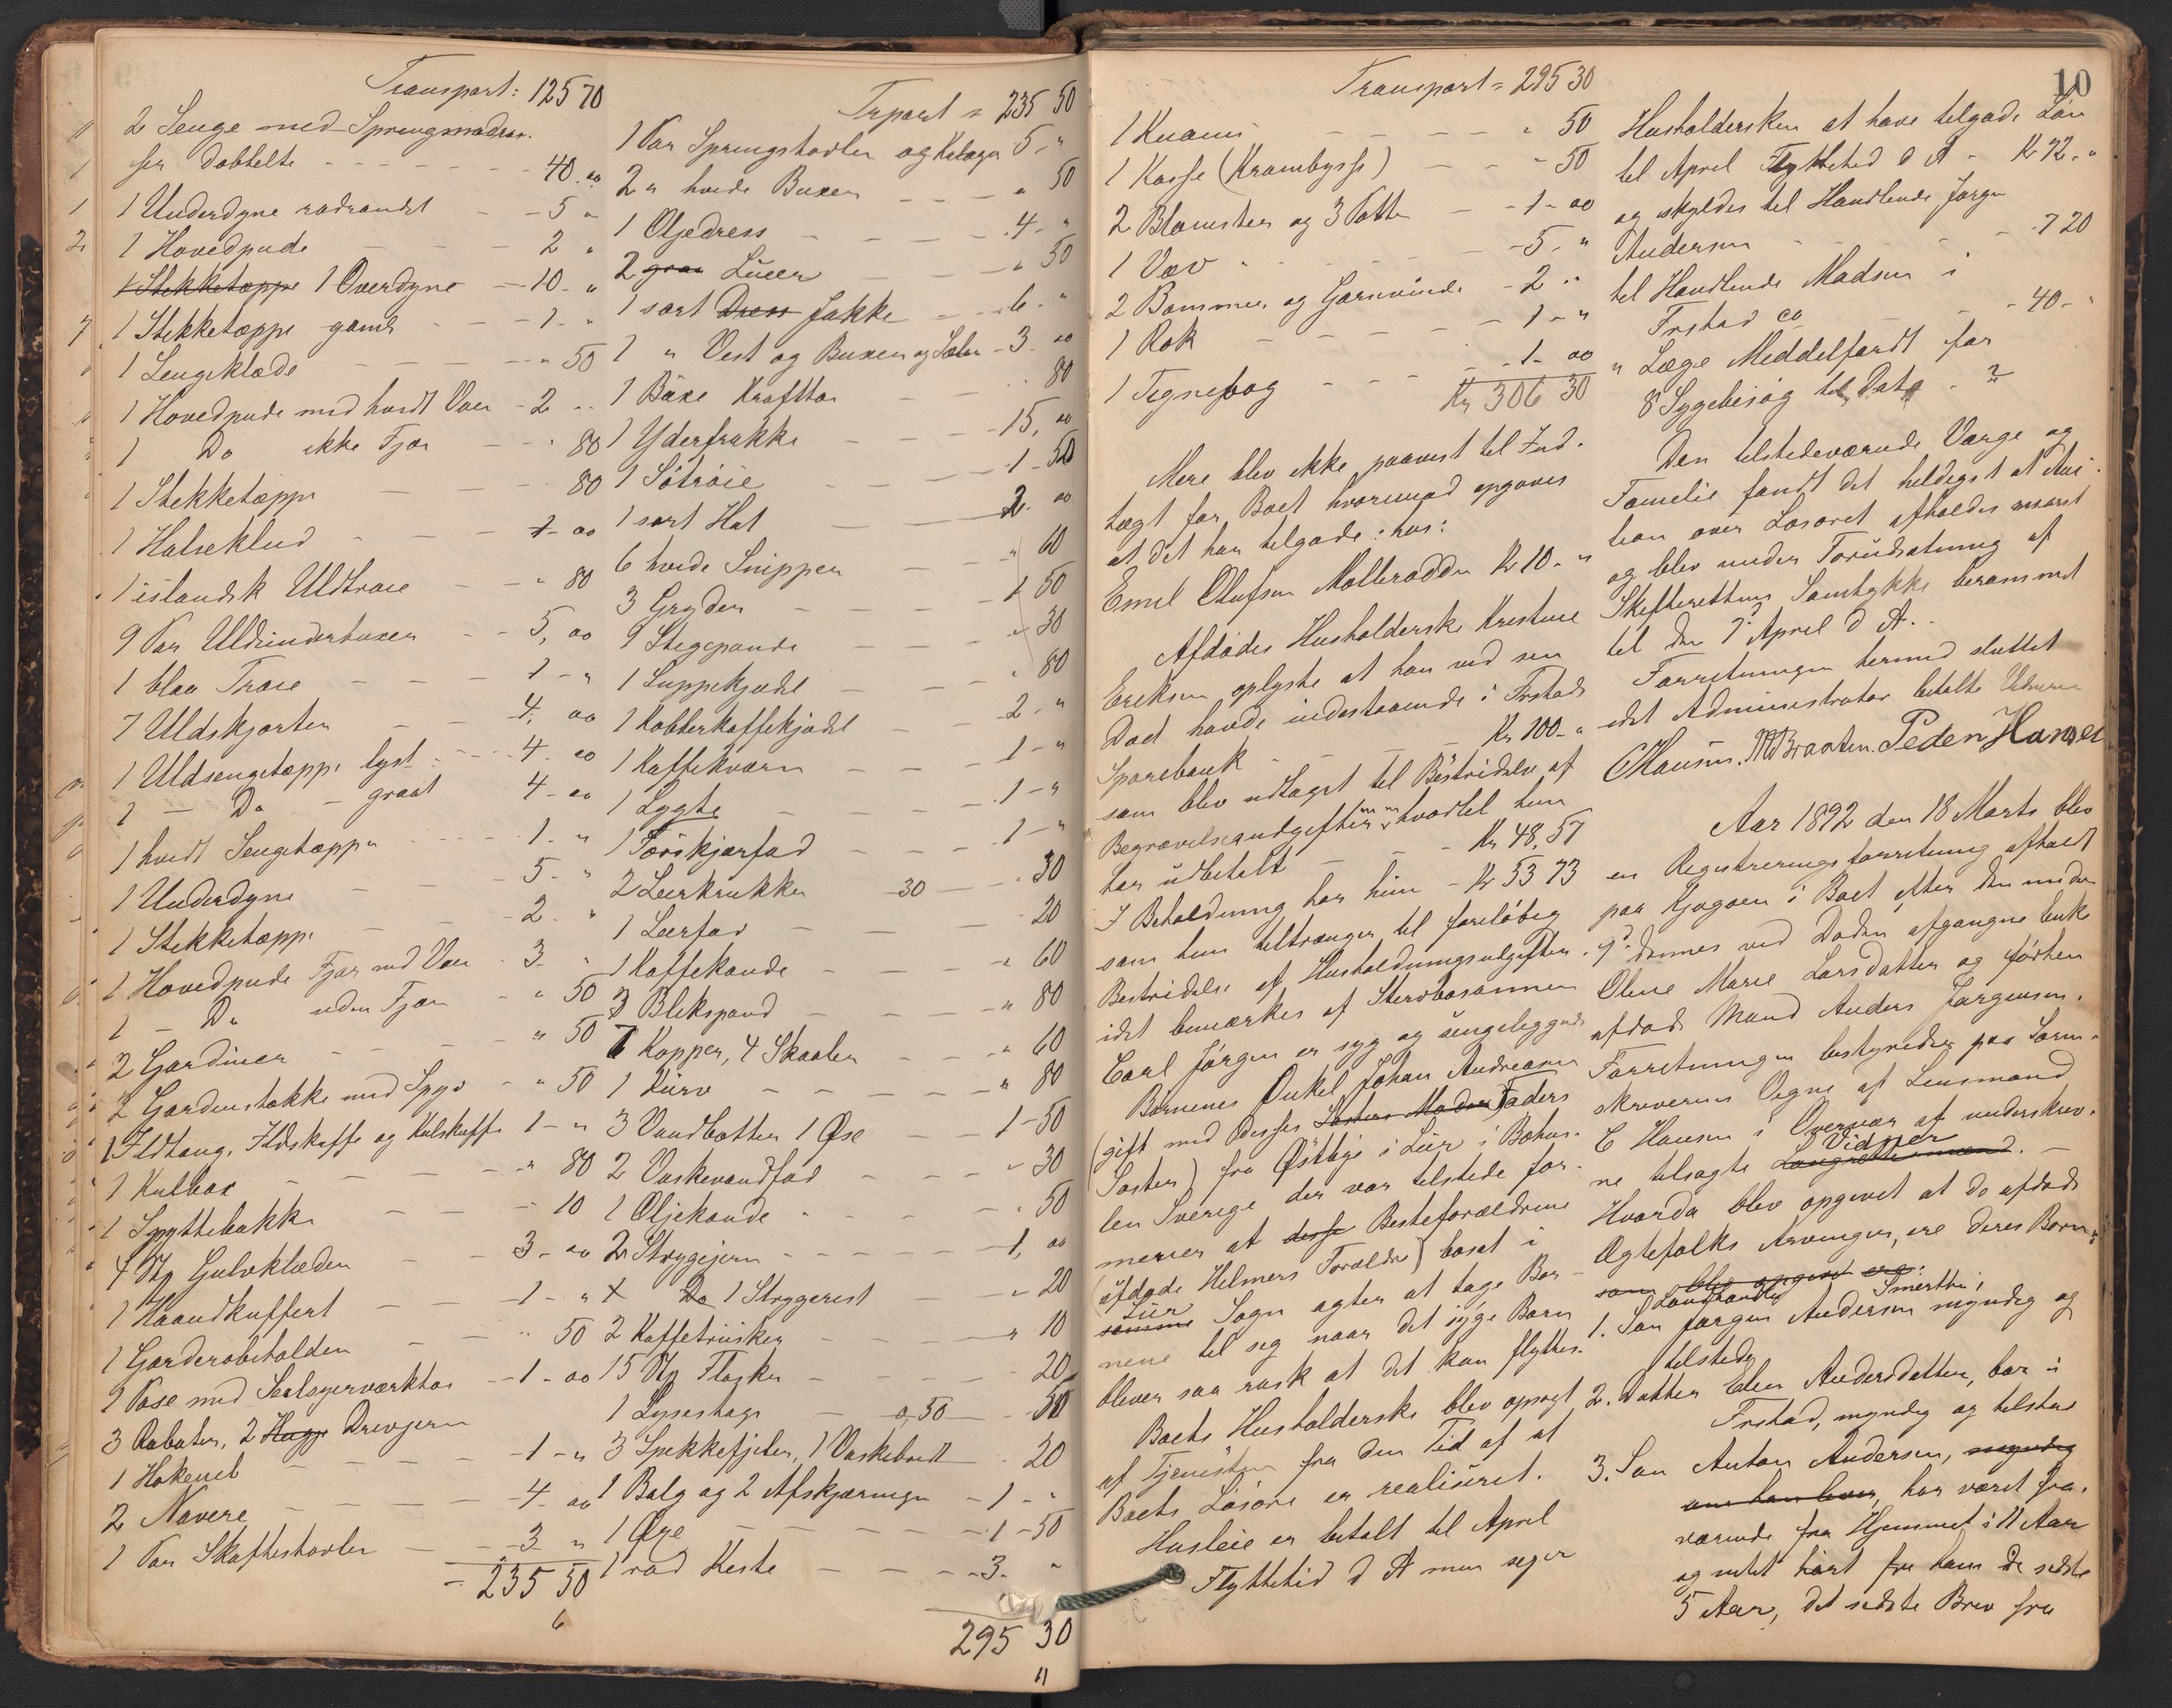 Transport: 125 70
2 Senge med Springmadras.
for dobbelte - - - 40. 00
1 Underdyne rødrandet - - 5 "
1 Hovedpude - - 2 "
1 Stikketæppe 1 Overdyne - 10. "
1 Stikketæppe gamlt - - 1. "
1 Sengeklæde - - " 50
1 Hovedpude med hvidt Vaer - 2 "
1 Do ikke Fjær - - " 80
1 Stikketæppe - - 80
1 Halseklud - - 1. 00
1 islandsk Uldtrøie - - " 80
9 Par Uldunderbuxer - - 5, 00
1 blaa Trøie - - 1 - "
7 Uldskjorter - - 4, 00
1 Uldsengetæppe lyst - - 4. 00
1 - Do - graat 4 - 00
1 hvidt Sengetæppe - - 1. "
1 Underdyne - - 5. "
1 Stikketæppe - 2. "
1 Hovedpude Fjær med Vaer - 3. "
1 - Do uden Fjær - " 50
2 Gardiner - - " 50
2 Gardinstokke med Spyd - " 50
1 Ildtang, Ildskuffe og Kulskuffe 1 - "
1 Kulbox - - " 80
1 Spyttebakke - - 10
4 Stk Gulvklæder - 3 - 00
1 Haandkuffert - 1 - "
1 Garderobeholder - " 50
1 Pose med Seilsyerverktøi - 1 - 00
3 Rabater, 2 Hugge Drevjern
1 Hakeneb - - 1 - "
2 Navere - - 4 - 00
1 Par Skaftestøvler - - 3 "
- 235 50
6
Trport = 235 50
1 Par Springstøvler og Kalager 5 - "
2 " hvide Buxer - - " 50
1 Oljedress - - 4 - "
2 graa Luer - - " 50
1 sort Dress Jakke - - 6. "
1 " Vest og Buxer og Seler - 3. 00
1 Buxe Krafttøi - - 80
1 Yderfrakke - - 15, 00
1 Søtrøie - - 1 - 50
1 sort Hat - - 2. 00
6 hvide Snipper - - " 60
3 Gryder - - 1 50
1 Stegepande - - " 30
1 Suppekjedel - - " 80
1 Kobberkaffekjedel - 2. "
1 Kaffekværn - - 1 - "
1 Lygte - - 1 - "
1 Forskjærfad - - 1 - "
2 Leerkrukker 30 - 30
1 Leerfad - - 20
1 Kaffekande - - " 60
3 Blikspand - - " 80
7 Kopper, 4 Skaaler - - " 60
1 Kurv - - " 80
3 Vandbøtter 1 Øse - - 1 - 50
2 Vaskevandfad - - " 30
1 Oljekande - - " 50
2 Strygejern - - 1, 00
1 Do 1 Strygerist - - " 20
2 Kaffetrusker - - " 10
15 Stk Flasker - - 20
1 Lysestage - 0,30 - 50
3 Spekkefjeler, 1 Vaskebrett - 20
1 Balg og 2 Afskjæringer - 1 - "
1 Øxe - - 1 - 50
1 rød Kiste - - 3. "
295 30
11
10
Transport = 295 30
1 Knaus - - " 50
1 Kasse (Krambysse) - - " 50
2 Blomster og 3 Potter - - 1 - 00
1 Væv - - 5. "
2 Bommer og Garnvinde - 2 "
1 Rok - - 1 - "
1 Tegnebog - - 1 - 00
Kr 306 30
Mere blev ikke paavist til Ind-
tægt for Boet hvorimod opgaves
at det har tilgode hos:
Emil Olufsen Møllerødden Kr 10 - "
Afdødes Husholderske Kristine
Eriksen oplyste at han ved sin
Død havde indestaaende i Frstad
Sparebank - - Kr 100 - "
som blev udtaget til Bestridelse af
Begravelsesudgifter hvortil hun
har udbetalt - - Kr 48,57
I Beholdning har hun - Kr 53 73
som hun tiltrænger til foreløbig
Bestridelse af Husholdningsudgifter
idet bemærkes af Stervbosønnen
Carl Jørgen er syg og sengeliggende
Børnenes Onkel Johan Andreasen
(gift med disses Søsters Moders Faders
Søster) fra Østbye i Luer i Bohus-
len Sverige der var tilstede for-
mener at disse Besteforældrene
(afdøde Helmers Forældre) bosat i
Luer
samme Sogn agter at tage Bør-
nene til sig naar det syge Barn
bliver saa rask at det kan flyttes.
Boets Husholderske blev opsagt
af Tjenesten fra den Tid af at
Boets Løsøre er realiseret.
Husleie er betalt til April
Flyttetid d A men siger
Husholdersken at have tilgode Løn
til April Flyttetid d A - Kr 72. "
og skyldes til Handlende Jørgen
Andersen - - 7 20
til Handlende Madsen i
Frstad ca - - 40 - "
" Læge Middelfardt for
8 Sygebesøg til Dato - ?
Den tilstedeværende Værge og
Familie fandt det heldigst at Auk-
tion over Løsøret afholdes snarest
og blev under Forudsætning af
Skifterettens Samtykke berammet
til den 7d April d A.
Forretningen hermed sluttet
idet Administrator betalte Vidnerne
CHansen. M Braaten. Peder Hansen
Aar 1892 den 18 Marts blev
en Registreringsforretning afholdt
paa Kjøgøen i Boet efter den under
9d dennes ved Døden afgangne Enke
Oline Marie Larsdatter og førhen
afdøde Mand Anders Jørgensen.
Forretningen bestyredes paa Soren-
skriverens Vegne af Lensmand
C Hansen i Overvær af underskrev-
Vidner
ne tilsagte Laugrettesmænd. -
Hvorda blev opgivet at de afdøde
Ægtefolks Arvinger, ere deres Børn:
som blev opgivet ere:
Landhandler Smertu,
1. Søn Jørgen Andersen myndig og
tilstede
2. Datter Elen Andersdatter, bor i
Frstad, myndig og tilstede
3. Søn Anton Andersen, myndig
om han lever, har været fra-
værende fra Hjemmet i 11 Aar
og intet hørt fra ham de sidste
5 Aar, det sidste Brev fra